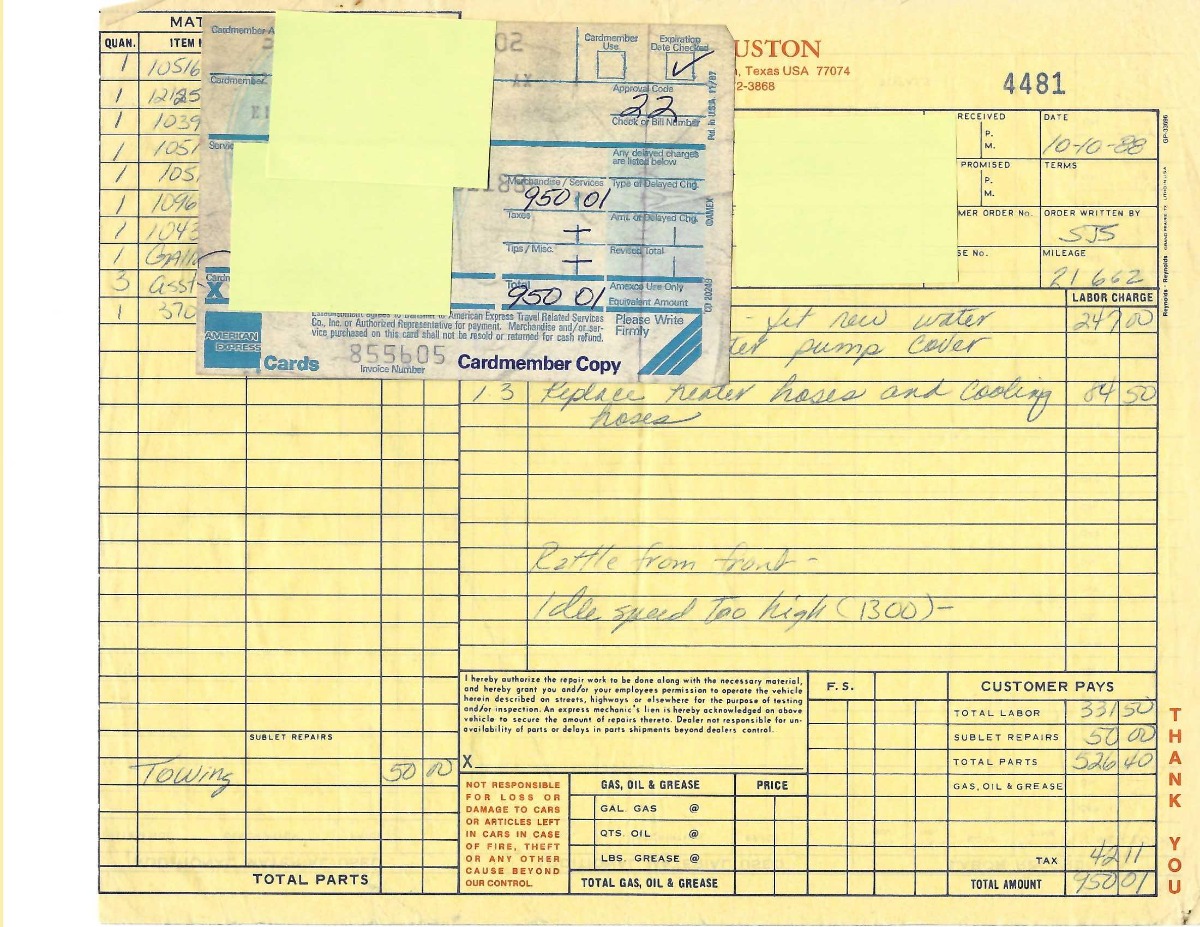 MAT
QUAN. ITEM
1 10516
1 12125
1 1039
1 1051
1 105
1 1096
1 1043
1
3 asst
1 370
Cardmember A
Cardmember
Servic
Cardmember Use
Expiration Date Checked
Approval Code
22
Check or Bill Number
Any delayed charges
are listed below
Merchandise / Services Type of Delayed Chg.
950 01
Taxes Amt. of Delayed Chg.
Tips / Misc. Revised Total
Total Amexco Use Only
950 01 Equivalent Amount
X
American Express Travel Related Services
Co., Inc. or Authorized Representative for payment. Merchandise and/or ser-
vice purchased on this card shall not be resold or returned for cash refund.
Please Write
Firmly
AMERICAN
EXPRESS
Cards
855605
Invoice Number
Cardmember Copy
USTON
, Texas USA 77074
2-3868
4481
RECEIVED
P.
M.
DATE
10-10-88
PROMISED
P.
M.
TERMS
MER ORDER No.
ORDER WRITTEN BY
SJS
SE No.
MILEAGE
21662
LABOR CHARGE
- fit new water 247 00
ter pump cover
1.3 Replace heater hoses and cooling 84 50
hoses
Rattle from front -
Idle speed too high (1300) -
SUBLET REPAIRS
Towing 50 00
TOTAL PARTS
I hereby authorize the repair work to be done along with the necessary material,
and hereby grant you and/or your employees permission to operate the vehicle
herein described on streets, highways or elsewhere for the purpose of testing
and/or inspection. An express mechanic's lien is hereby acknowledged on above
vehicle to secure the amount of repairs thereto. Dealer not responsible for un-
availability of parts or delays in parts shipments beyond dealers control.
X
NOT RESPONSIBLE
FOR LOSS OR
DAMAGE TO CARS
OR ARTICLES LEFT
IN CARS IN CASE
OF FIRE, THEFT
OR ANY OTHER
CAUSE BEYOND
OUR CONTROL.
GAS, OIL & GREASE PRICE
GAL. GAS @
QTS. OIL @
LBS. GREASE @
TOTAL GAS, OIL & GREASE
F.S.
CUSTOMER PAYS
TOTAL LABOR 331 50
SUBLET REPAIRS 50 00
TOTAL PARTS 526 40
GAS, OIL & GREASE
TAX 42 11
TOTAL AMOUNT 950 01
THANK YOU